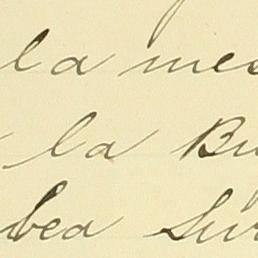 la mes
la Bu
bea Sur